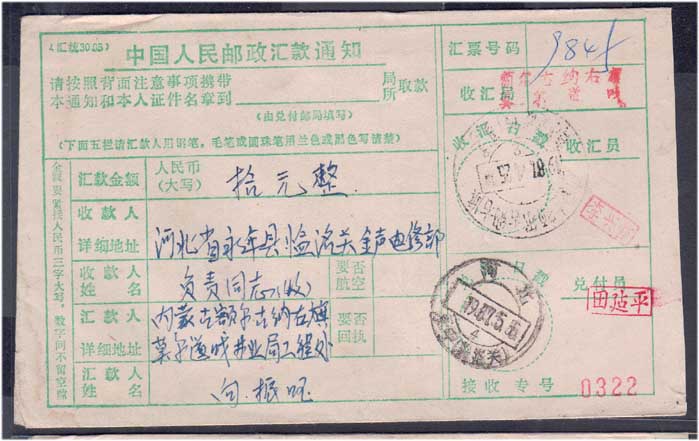 (汇统30.05)
中国人民邮政汇款通知
请按照背面注意事项携带
本通知和本人证件名章到
局
所
取款
(由兑付邮局填写)
(下面五栏请汇款人用钢笔,毛笔或圆珠笔用兰色或黑色写清楚)
汇票号码
收汇局
金额要紧接人民币三字大写,数字间不留空隙
汇款金额
人民币
(大写)
拾元整
收款人
详细地址
河北省永年县临洺关金声电修部
收款人
姓名
负责同志(收)
要否
航空
汇款人
详细地址
内蒙古额尔古纳右旗
莫尔道嘎林业局工程处
要否
回执
汇款人
姓名
向振
收汇日戳
收汇员
日戳
兑付员
田延平
河北
接收专号
0322